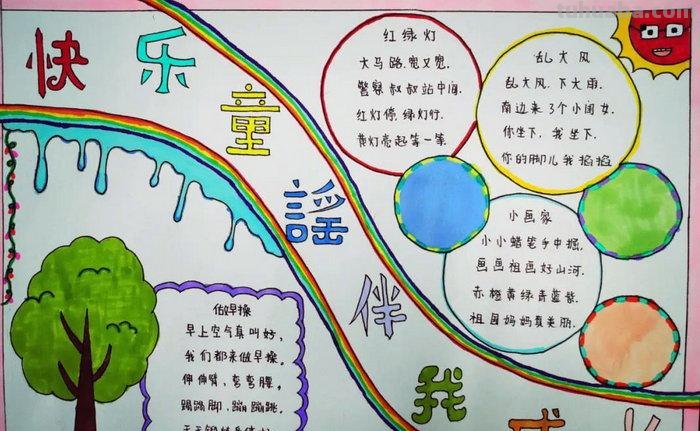 tuhuaba.com
快乐童謡伴我成长
红绿灯
大马路,宽又宽,
警察叔叔站中间,
红灯停,绿灯行,
黄灯亮起等一等
乱大风
乱大风,下大雨,
南边来了个小闺女,
你坐下,我坐下,
你的脚儿我掐掐
小画家
小小蜡笔手中握,
画画祖国好山河,
赤橙黄绿青蓝紫,
祖国妈妈真美丽.
做早操
早上空气真叫好,
我们都来做早操。
伸伸臂,弯弯腰,
踢踢脚,蹦蹦跳,